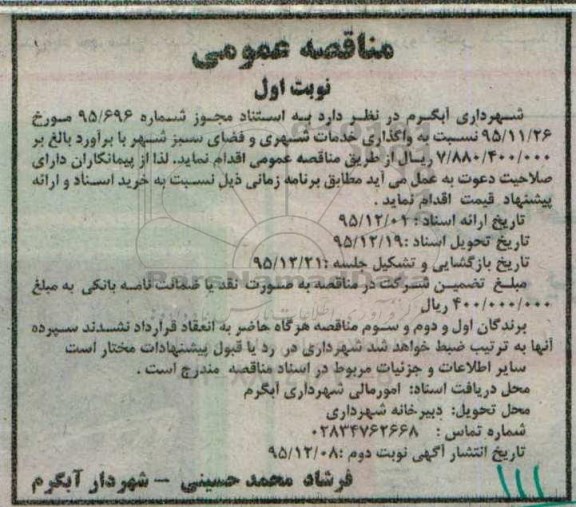 مناقصه عمومی
نوبت اول
شهرداری آبگرم در نظر دارد به استناد مجوز شماره ۹۵/۶۹۶ مورخ
۹۵/۱۱/۲۶ نسبت به واگذاری خدمات شهری و فضای سبز شهر با برآورد بالغ بر
۷/۸۸۰/۴۰۰/۰۰۰ ریال از طریق مناقصه عمومی اقدام نماید. لذا از پیمانکاران دارای
صلاحیت دعوت به عمل می آید مطابق برنامه زمانی ذیل نسبت به خرید اسناد و ارائه
پیشنهاد قیمت اقدام نماید .
تاریخ ارائه اسناد : ۹۵/۱۲/۰۲
تاریخ تحویل اسناد :۹۵/۱۲/۱۹
تاریخ بازگشایی و تشکیل جلسه :۹۵/۱۲/۲۱
مبلغ تضمین شرکت در مناقصه به صورت نقد یا ضمانت نامه بانکی به مبلغ
۴۰۰/۰۰۰/۰۰۰ ریال
برندگان اول و دوم و سوم مناقصه هرگاه حاضر به انعقاد قرارداد نشدند سپرده
آنها به ترتیب ضبط خواهد شد شهرداری در رد یا قبول پیشنهادات مختار است
سایر اطلاعات و جزئیات مربوط در اسناد مناقصه مندرج است .
محل دریافت اسناد: امورمالی شهرداری آبگرم
محل تحویل: دبیرخانه شهرداری
شماره تماس : ۰۲۸۳۴۷۶۲۶۶۸
تاریخ انتشار آگهی نوبت دوم :۹۵/۱۲/۰۸
فرشاد محمد حسینی - شهردار آبگرم
۱۱۱